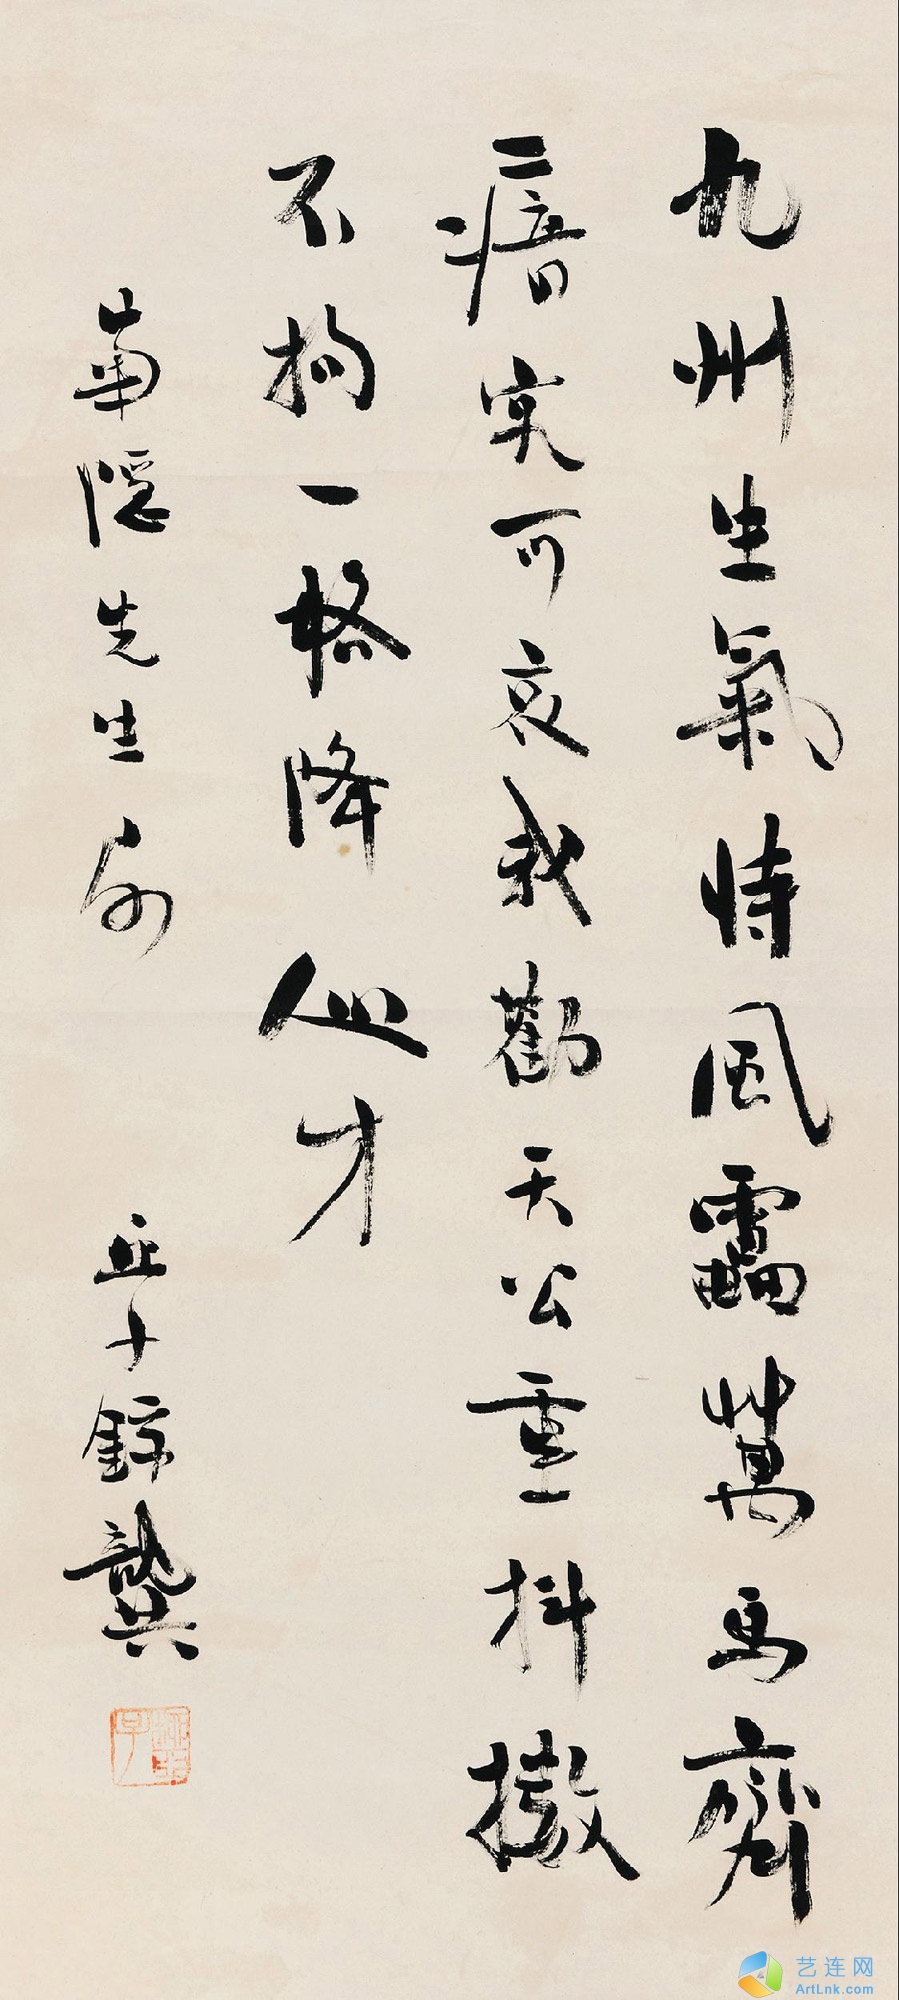 九州生氣恃風靁萬馬齊
瘖究可哀我勸天公重抖擻
不拘一格降人才
南隱先生屬
龔
艺连网
ArtLnk.com